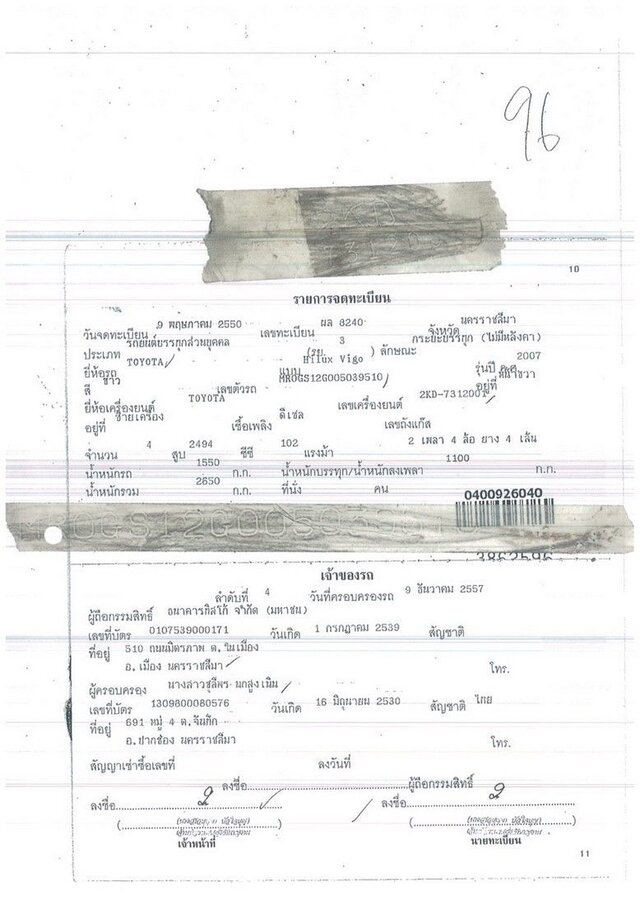 96
10
รายการจดทะเบียน
วันจดทะเบียน 9 พฤษภาคม 2550 เลขทะเบียน ผล 8240 จังหวัด นครราชสีมา
ประเภท รถยนต์บรรทุกส่วนบุคคล (รย. 3 ) ลักษณะ กระบะบรรทุก (ไม่มีหลังคา)
ยี่ห้อรถ TOYOTA แบบ Hilux Vigo รุ่นปี ค.ศ. 2007
สี ขาว เลขตัวรถ MR0GS12G005039510 อยู่ที่
ยี่ห้อเครื่องยนต์ TOYOTA เลขเครื่องยนต์ 2KD-7312001
อยู่ที่ ซ้ายเครื่อง เชื้อเพลิง ดีเซล เลขถังแก๊ส
จำนวน 4 สูบ 2494 ซีซี 102 แรงม้า 2 เพลา 4 ล้อ ยาง 4 เส้น
น้ำหนักรถ 1550 ก.ก. น้ำหนักบรรทุก/น้ำหนักลงเพลา 1100 ก.ก.
น้ำหนักรวม 2650 ก.ก. ที่นั่ง คน
0400926040
3862596
เจ้าของรถ
ลำดับที่ 4 วันที่ครอบครองรถ 9 ธันวาคม 2557
ผู้ถือกรรมสิทธิ์ ธนาคารทิสโก้ จำกัด (มหาชน)
เลขที่บัตร 0107539000171 วันเกิด 1 กรกฎาคม 2539 สัญชาติ
ที่อยู่ 510 ถนนมิตรภาพ ต.ในเมือง
อ.เมือง นครราชสีมา โทร.
ผู้ครอบครอง นางสาวชุลีพร นกสูงเนิน
เลขที่บัตร 1309800080576 วันเกิด 16 มิถุนายน 2530 สัญชาติ ไทย
ที่อยู่ 691 หมู่ 4 ต.จันทึก
อ.ปากช่อง นครราชสีมา โทร.
สัญญาเช่าซื้อเลขที่ ลงวันที่
ลงชื่อ ผู้ถือกรรมสิทธิ์
ลงชื่อ ลงชื่อ
เจ้าหน้าที่ นายทะเบียน
11